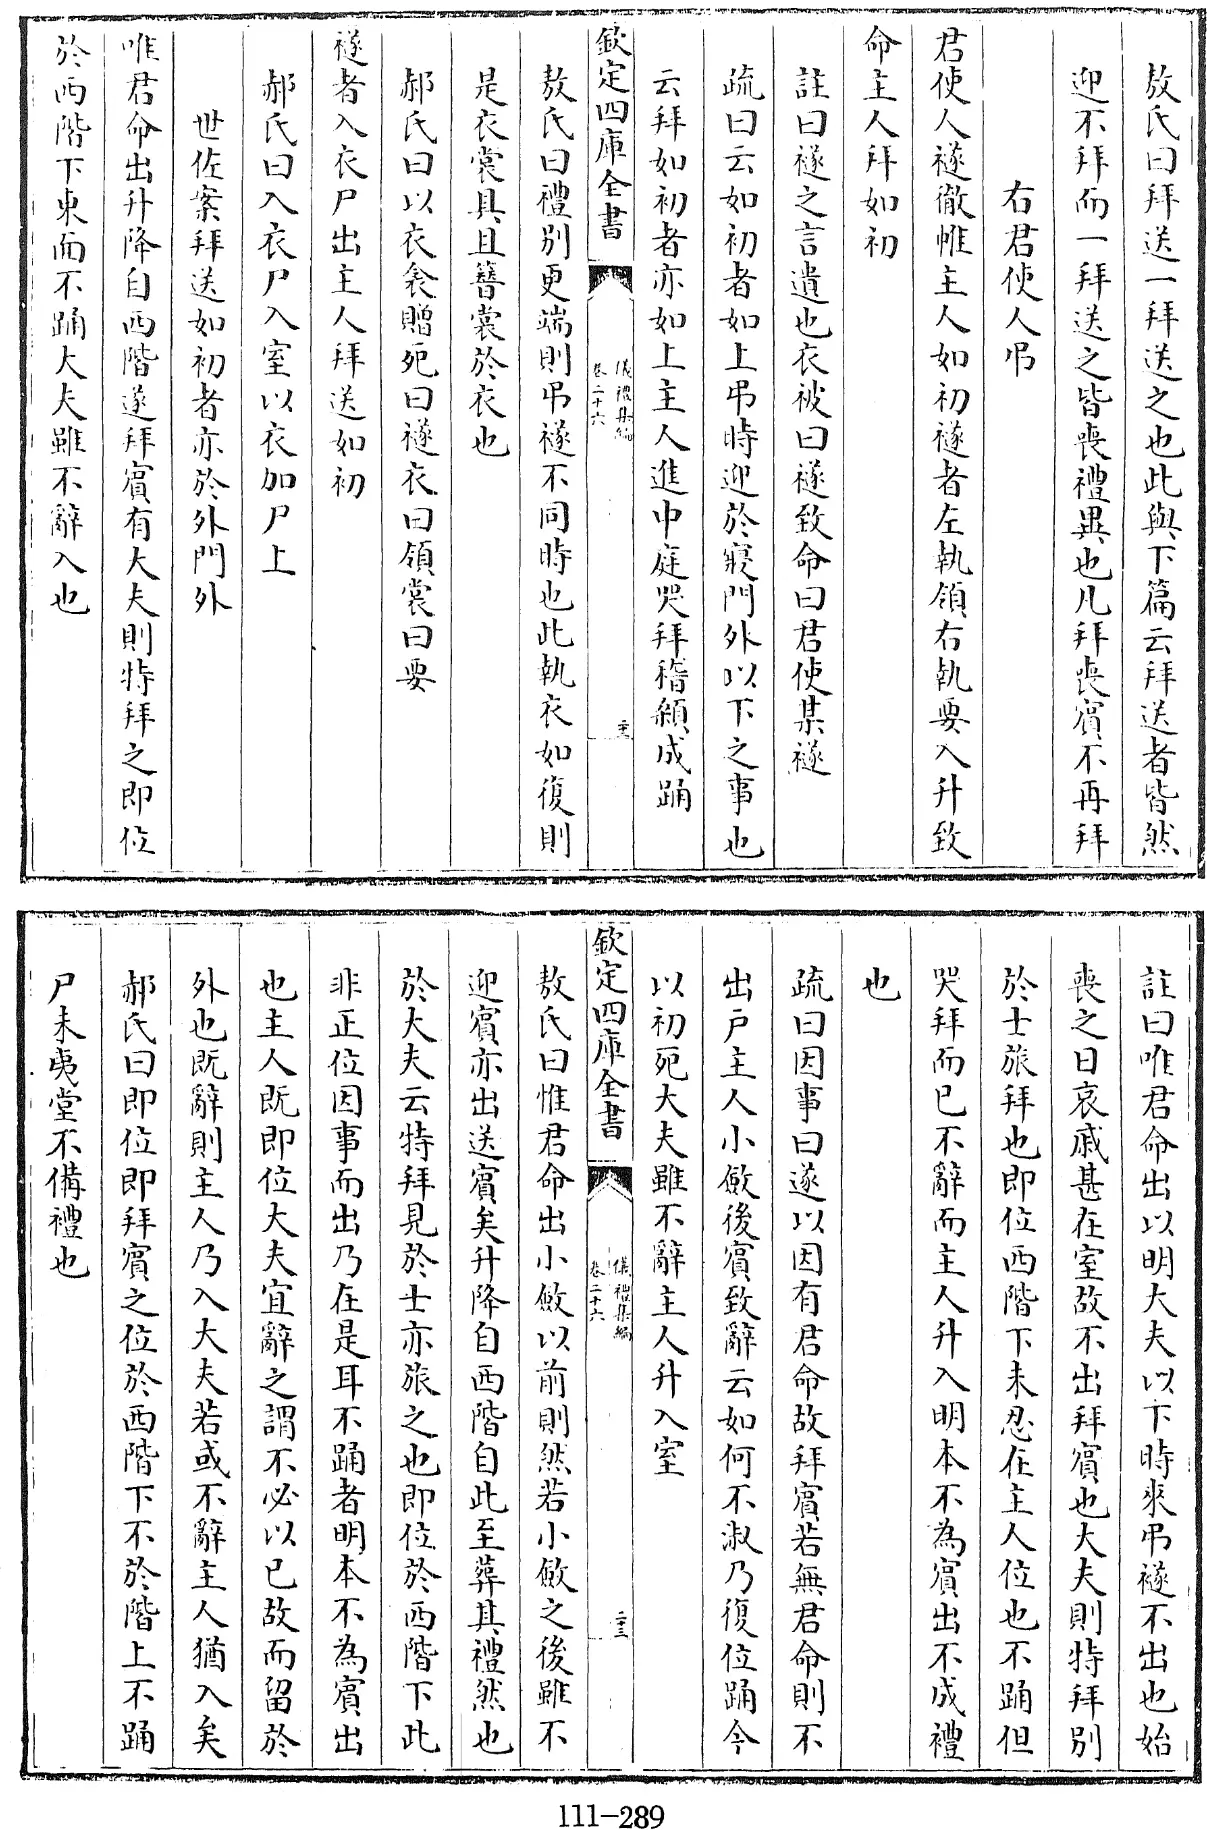 敖氏曰拜送一拜送之也此與下篇云拜送者皆然
迎不拜而一拜送之皆喪禮異也凡拜喪賓不再拜
右君使人弔
君使人襚徹帷主人如初襚者左執領右執要入升致
命主人拜如初
註曰襚之言遺也衣被曰襚致命曰君使某襚
疏曰云如初者如上弔時迎於寢門外以下之事也
云拜如初者亦如上主人進中庭哭拜稽顙成踊
欽定四庫全書
儀禮集編
卷二十六
二十二
敖氏曰禮別更端則弔襚不同時也此執衣如復則
是衣裳具且簪裳於衣也
郝氏曰以衣衾贈死曰襚衣曰領裳曰要
襚者入衣尸出主人拜送如初
郝氏曰入衣尸入室以衣加尸上
世佐案拜送如初者亦於外門外
唯君命出升降自西階遂拜賓有大夫則特拜之即位
於西階下東面不踊大夫雖不辭入也
註曰唯君命出以明大夫以下時來弔襚不出也始
喪之日哀戚甚在室故不出拜賓也大夫則特拜別
於士旅拜也即位西階下未忍在主人位也不踊但
哭拜而已不辭而主人升入明本不為賓出不成禮
也
疏曰因事曰遂以因有君命故拜賓若無君命則不
出戶主人小斂後賓致辭云如何不淑乃復位踊今
以初死大夫雖不辭主人升入室
欽定四庫全書
儀禮集編
卷二十六
二十三
敖氏曰惟君命出小斂以前則然若小斂之後雖不
迎賓亦出送賓矣升降自西階自此至葬其禮然也
於大夫云特拜見於士亦旅之也即位於西階下此
非正位因事而出乃在是耳不踊者明本不為賓出
也主人既即位大夫宜辭之謂不必以已故而留於
外也既辭則主人乃入大夫若或不辭主人猶入矣
郝氏曰即位即拜賓之位於西階下不於階上不踊
尸未夷堂不備禮也
111-289